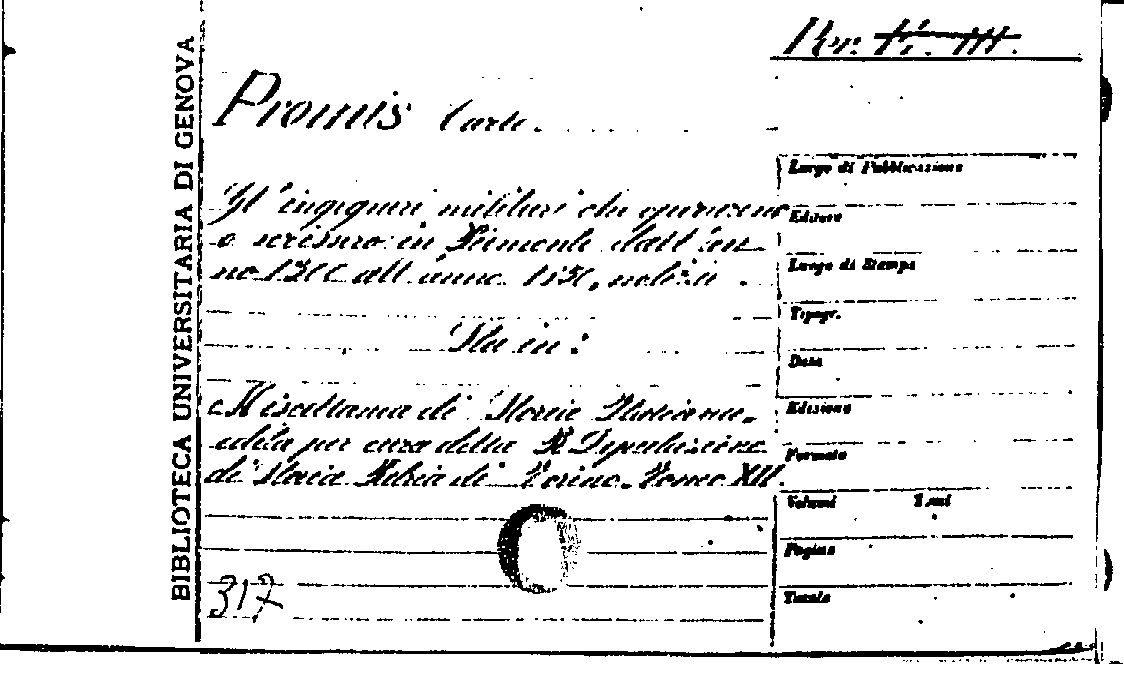 BIBLIOTECA UNIVERSITARIA DI GENOVA
Per. VI. III.
Promis Carlo.
Gl'ingegneri militari che operarono
o scrissero in Piemonte dall'an-
no 1300 all'anno 1650, notizie
Sta in:
Miscellanea di Storia Italiana,
edita per cura della R. Deputazione
di Storia Patria di Torino. Tomo XII.
317
Luogo di Pubblicazione
Editore
Luogo di Stampa
Tipogr.
Data
Edizione
Formato
Volumi Tomi
Pagine
Tavole